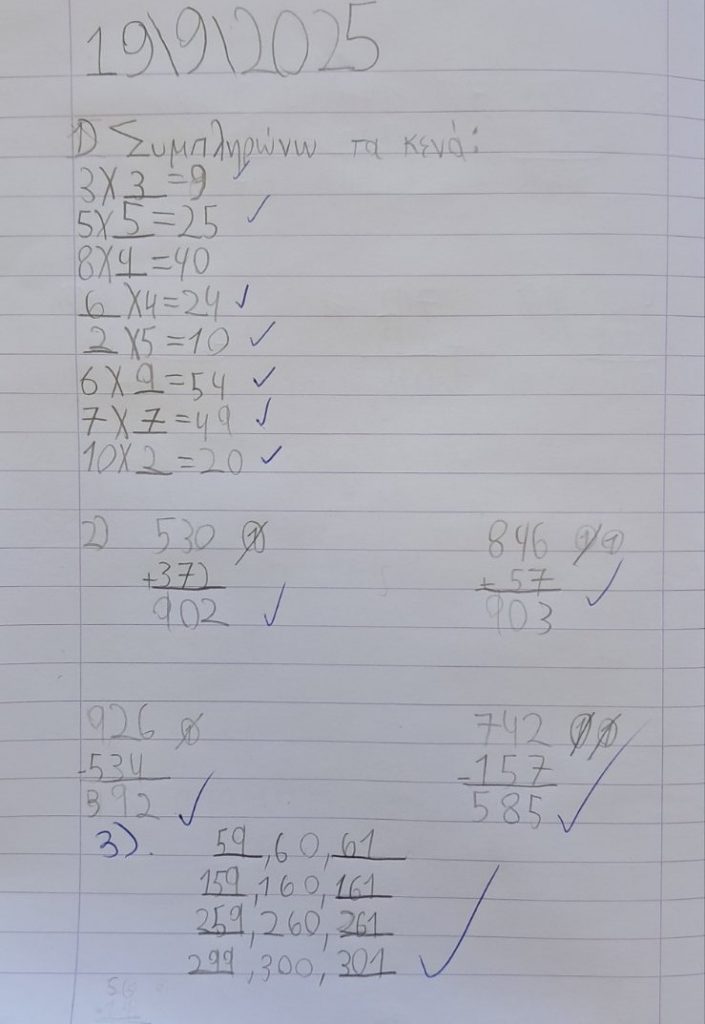 19\9\2025
1) Συμπληρώνω τα κενά:
3X3=9 ✓
5X5=25 ✓
8X4=40
6X4=24 ✓
2X5=10 ✓
6X9=54 ✓
7X7=49 ✓
10X2=20 ✓
2) 530 846
+37 + 57
902 ✓ 903 ✓
926 742
-534 -157
392 ✓ 585 ✓
3).
59,60,61
159,160,161
259,260,261
299,300,301 ✓